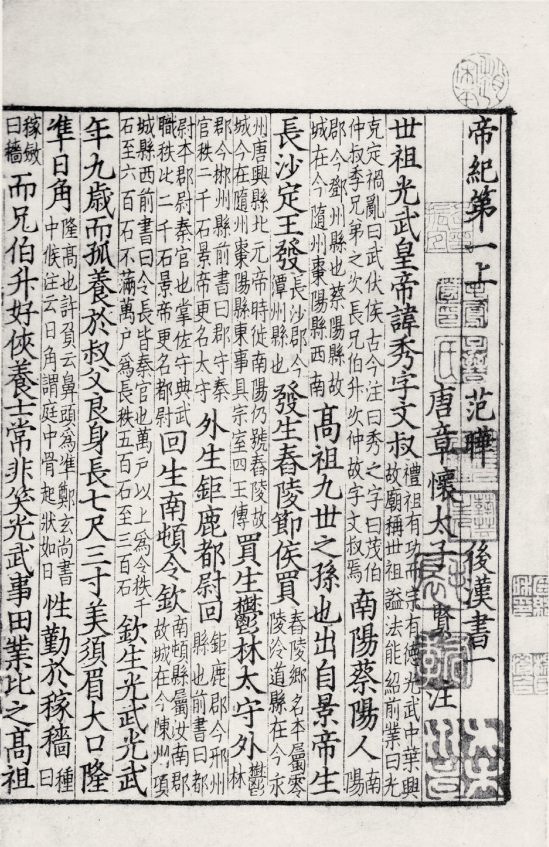 帝紀第一上　范曄　後漢書一
唐章懷太子賢注
世祖光武皇帝諱秀字文叔禮祖有功而宗有德光武中華興故廟稱世祖謚法能紹前業曰光
克定禍亂曰武伏侯古今注曰秀之字曰茂伯仲叔季兄弟之次長兄伯升次仲故字文叔焉南陽蔡陽人南陽
郡今鄧州縣也蔡陽縣故城在今隨州棗陽縣西南高祖九世之孫也出自景帝生
長沙定王發長沙郡今潭州縣也發生舂陵節侯買舂陵鄉名本屬零陵泠道縣在今永
州唐興縣北元帝時徙南陽仍號舂陵故城今在隨州棗陽縣東事具宗室四王傳買生鬱林太守外鬱林
郡今郴州縣前書曰郡守秦官秩二千石景帝更名太守外生鉅鹿都尉回鉅鹿郡今邢州縣也前書曰都
尉本郡尉秦官也掌佐守典武職秩比二千石景帝更名都尉回生南頓令欽南頓縣屬汝南郡故城在今陳州項
城縣西前書曰令長皆秦官也萬戶以上為令秩千石至六百石不滿萬戶為長秩五百石至三百石欽生光武光武
年九歲而孤養於叔父良身長七尺三寸美須眉大口隆
準日角隆高也許負云鼻頭為準鄭玄尚書中候注云日角謂庭中骨起狀如日性勤於稼穡種曰
稼斂曰穡而兄伯升好俠養士常非笑光武事田業比之高祖